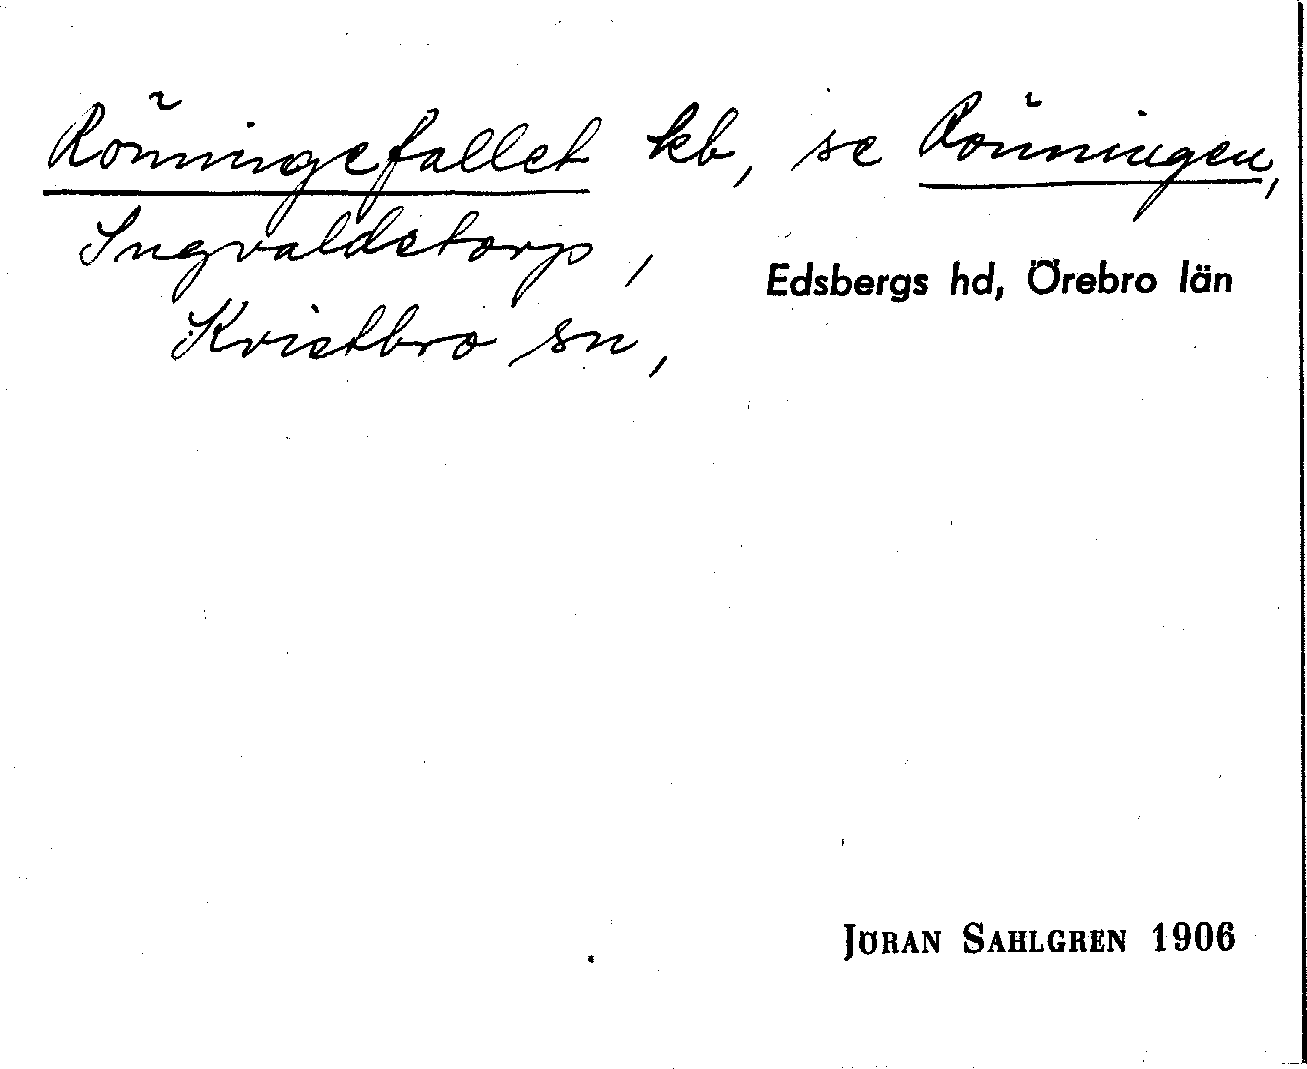 Rönningsfallet kb, se Rönningen,
Ingvaldstorp,
Edsbergs hd, Örebro län
Kvistbro sn,
JÖRAN SAHLGREN 1906